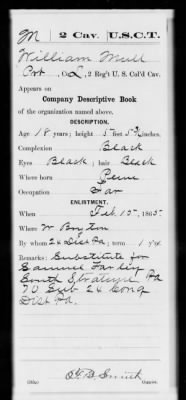 M | 2 Cav. | U.S.C.T.
William Mull
Pvt., Co. L, 2 Reg't U. S. Col'd Cav.
Appears on
Company Descriptive Book
of the organization named above.
DESCRIPTION.
Age 18 years; height 5 feet 5 inches.
Complexion Black
Eyes Black; hair Black
Where born Penn
Occupation Far
ENLISTMENT.
When Feb 15, 1865.
Where
By whom 24 Dist Pa; term 1 y'rs.
Remarks: Substitute for
Samuel Farley
Pa
70 Sub 24 Cong
Dist Pa.
Smith
Copyist.